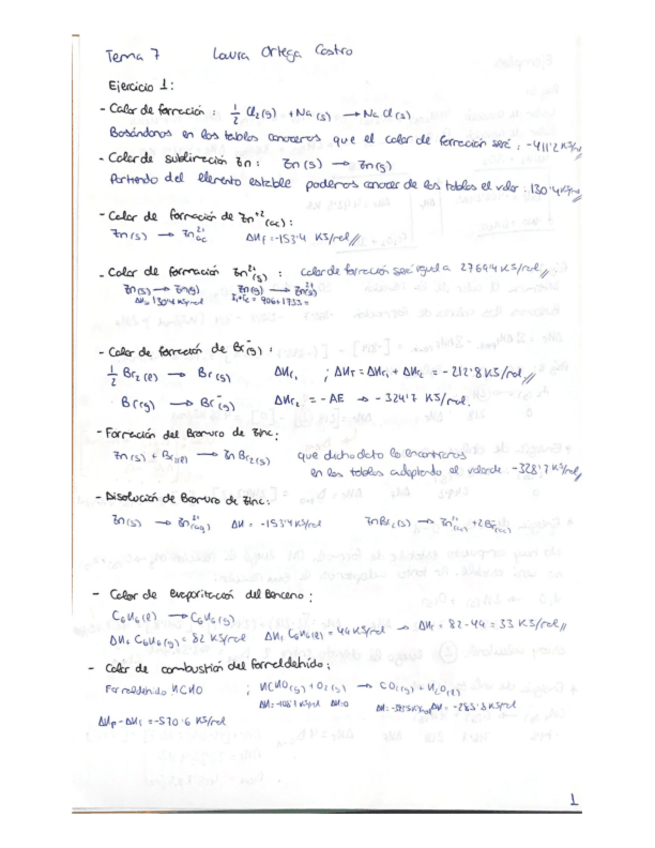 Tema 7 Laura Ortega Castro
Ejercicio 1:
- Calor de formación : 1/2 Cl₂(g) + Na(s) → NaCl(s)
Basándonos en las tablas conocemos que el calor de formación será : -411'2 KJ/
- Calor de sublimación Zn : Zn(s) → Zn(g)
Partiendo del elemento estable podemos conocer de las tablas el valor : 130'4 KJ/mol
- Calor de formación de Zn⁺²(ac) :
Zn(s) → Zn²⁺ac ΔHf = -153'4 KJ/mol //
- Calor de formación Zn²⁺(g) : calor de formación será igual a 2769'4 KJ/mol //
Zn(s) → Zn(g) Zn(g) → Zn²⁺(g)
ΔH= 130'4 KJ/mol = 906+1733 =
- Calor de formación de Br⁻(g) :
1/2 Br₂(l) → Br(g) ΔHr₁ ; ΔHT = ΔHr₁ + ΔHr₂ = -212'8 KJ/mol //
Br(g) → Br⁻(g) ΔHr₂ = -AE → -324'7 KJ/mol.
- Formación del Bromuro de Zinc :
Zn(s) + Br₂(l) → ZnBr₂(s) que dicho dato lo encontramos
en las tablas adoptando el valor de -328'7 KJ/mol
- Disolución de Bromuro de Zinc :
Zn(s) → Zn²⁺(aq) ΔH = -153'4 KJ/mol ZnBr₂(s) → Zn²⁺(ac) + 2Br⁻(ac)
- Calor de evaporización del Benceno :
C₆H₆(l) → C₆H₆(g)
ΔHf C₆H₆(g) = 82 KJ/mol ΔHf C₆H₆(l) = 44 KJ/mol → ΔHr = 82-44 = 33 KJ/mol //
- Calor de combustión del formaldehído ;
Formaldehído HCHO ; HCHO(g) + O₂(g) → CO₂(g) + H₂O(l)
ΔH=0 ΔH = -285'8 KJ/mol
ΔHp - ΔHr = -570'6 KJ/mol
1